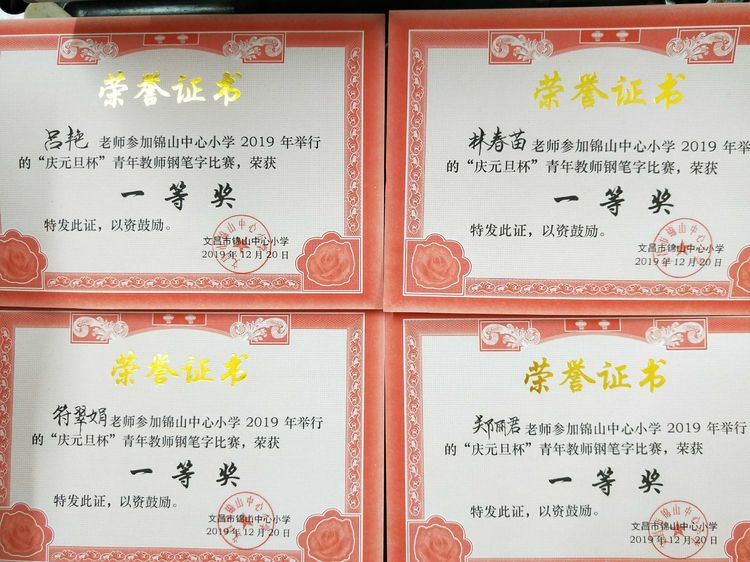 荣誉证书
吕艳 老师参加锦山中心小学 2019 年举行
的“庆元旦杯”青年教师钢笔字比赛，荣获
一等奖
特发此证，以资鼓励。
文昌市锦山中心小学
2019 年 12 月 20 日
荣誉证书
林春苗 老师参加锦山中心小学 2019 年举
的“庆元旦杯”青年教师钢笔字比赛，荣获
一等奖
特发此证，以资鼓励。
文昌市锦山中心小学
2019 年 12 月 20 日
荣誉证书
符翠娟 老师参加锦山中心小学 2019 年举行
的“庆元旦杯”青年教师钢笔字比赛，荣获
一等奖
特发此证，以资鼓励。
文昌市锦山中心小学
2019 年 12 月 20 日
荣誉证书
郑丽君 老师参加锦山中心小学 2019 年举行
的“庆元旦杯”青年教师钢笔字比赛，荣获
一等奖
特发此证，以资鼓励。
文昌市锦山中心小学
2019 年 12 月 20 日